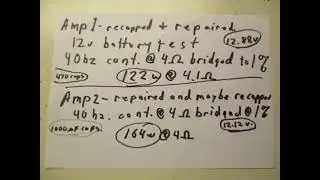 Amp 1 - recapped & repaired
12v battery test 12.88v
40hz cont. @ 4Ω bridged to 1%
470 caps 122w @ 4.1Ω
Amp 2 - repaired and maybe recapped
40 hz. cont. @ 4Ω bridged @ 1%
1000µF caps 164w @ 4Ω 12.12v